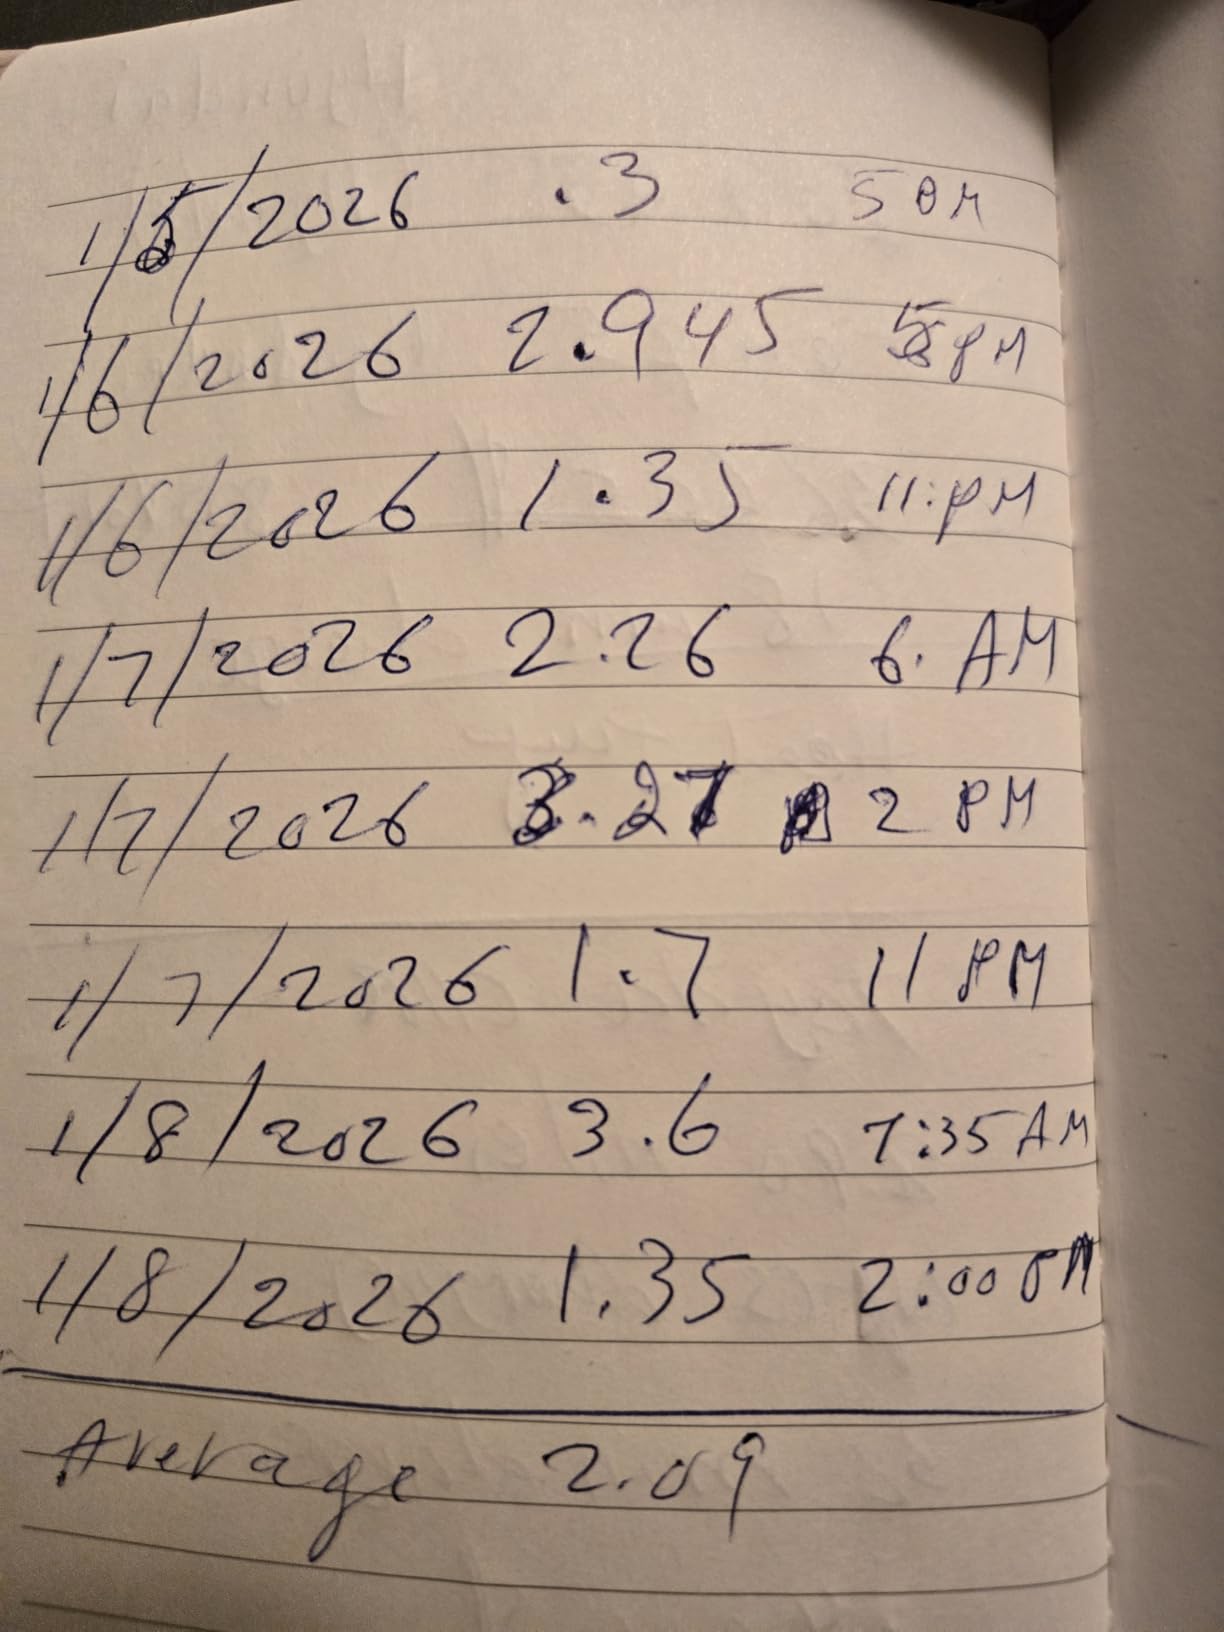 1/5/2026 .3 5 PM
1/6/2026 2.945 5 PM
1/6/2026 1.35 11:PM
1/7/2026 2.26 6. AM
1/7/2026 3.27 2 PM
1/7/2026 1.7 11 PM
1/8/2026 3.6 7:35 AM
1/8/2026 1.35 2:00 PM
Average 2.09